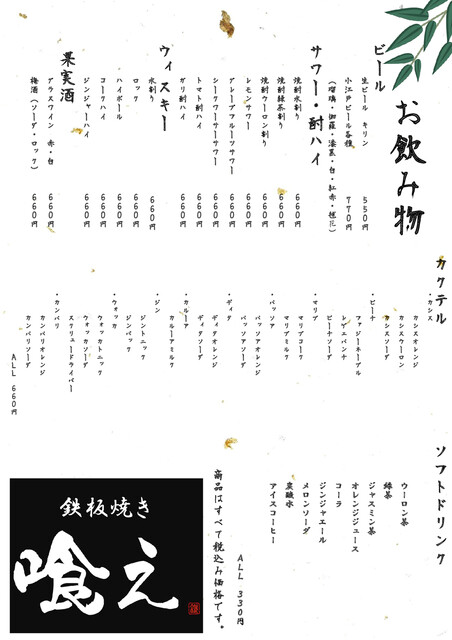 お飲み物
ビール
生ビール キリン 550円
小江戸ビール各種 770円
（瑠璃・伽羅・漆黒・白・紅赤・
サワー・酎ハイ
焼酎水割り 660円
焼酎緑茶割り 660円
焼酎ウーロン割り 660円
レモンサワー 660円
グレープフルーツサワー 660円
シークワーサーサワー 660円
トマト酎ハイ 660円
ガリ酎ハイ 660円
ウィスキー
水割り 660円
ロック 660円
ハイボール 660円
コークハイ 660円
ジンジャーハイ 660円
果実酒
グラスワイン 赤・白 660円
梅酒（ソーダ・ロック） 660円
カクテル
・カシス
カシスオレンジ
カシスウーロン
カシスソーダ
・ピーチ
ファジーネーブル
レゲエパンチ
ピーチソーダ
・マリブ
マリブコーク
マリブミルク
・パッソア
パッソアオレンジ
パッソアソーダ
・ディタ
ディタオレンジ
ディタソーダ
・カルーア
カルーアミルク
・ジン
ジントニック
ジンバック
・ウォッカ
ウォッカトニック
ウォッカソーダ
スクリュードライバー
・カンパリ
カンパリオレンジ
カンパリソーダ
ALL 660円
ソフトドリンク
ウーロン茶
緑茶
ジャスミン茶
オレンジジュース
コーラ
ジンジャエール
メロンソーダ
炭酸水
アイスコーヒー
ALL 330円
商品はすべて税込み価格です。
鉄板焼き
喰え